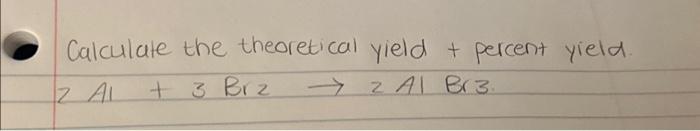 Calculate the theoretical yield + percent yield.
2 Al + 3 Br2 → 2 Al Br3.